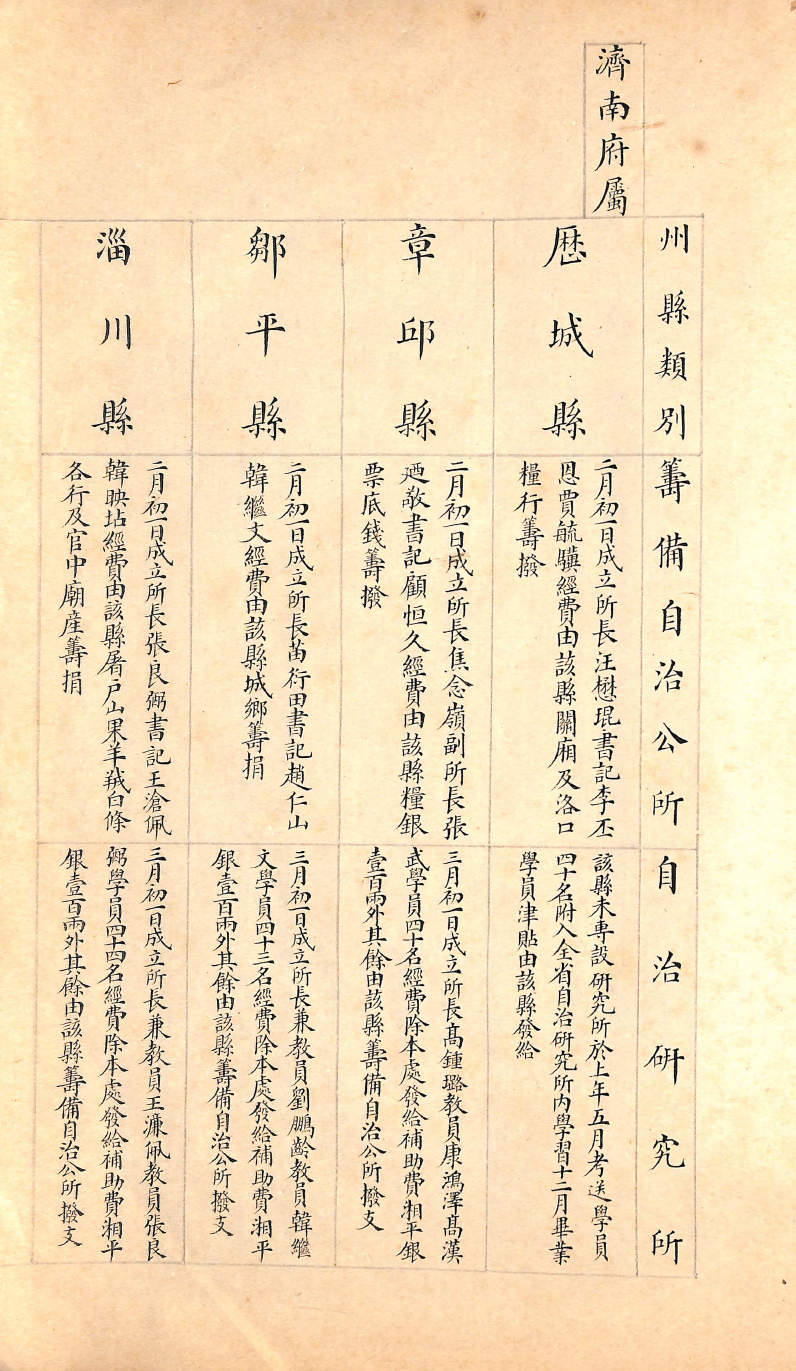 濟南府屬
州縣類別
籌備自治公所
自治研究所
歷城縣
二月初一日成立所長汪懋琨書記李丕
恩賈毓驥經費由該縣關廂及洛口
糧行籌撥
該縣未專設研究所於上年五月考送學員
四十名附入全省自治研究所內學習十二月畢業
學員津貼由該縣發給
章邱縣
二月初一日成立所長焦念嶺副所長張
廼敬書記顧恒久經費由該縣糧銀
票底錢籌撥
三月初一日成立所長高鍾璐教員康鴻澤高漢
武學員四十名經費除本處發給補助費湘平銀
壹百兩外其餘由該縣籌備自治公所撥支
鄒平縣
二月初一日成立所長苗衍田書記趙仁山
韓繼文經費由該縣城鄉籌捐
三月初一日成立所長兼教員劉鵬齡教員韓繼
文學員四十三名經費除本處發給補助費湘平
銀壹百兩外其餘由該縣籌備自治公所撥支
淄川縣
二月初一日成立所長張良弼書記王滄佩
韓映坫經費由該縣屠戶山果羊羢白條
各行及官中廟產籌捐
三月初一日成立所長兼教員王濂佩教員張良
弼學員四十四名經費除本處發給補助費湘平
銀壹百兩外其餘由該縣籌備自治公所撥支